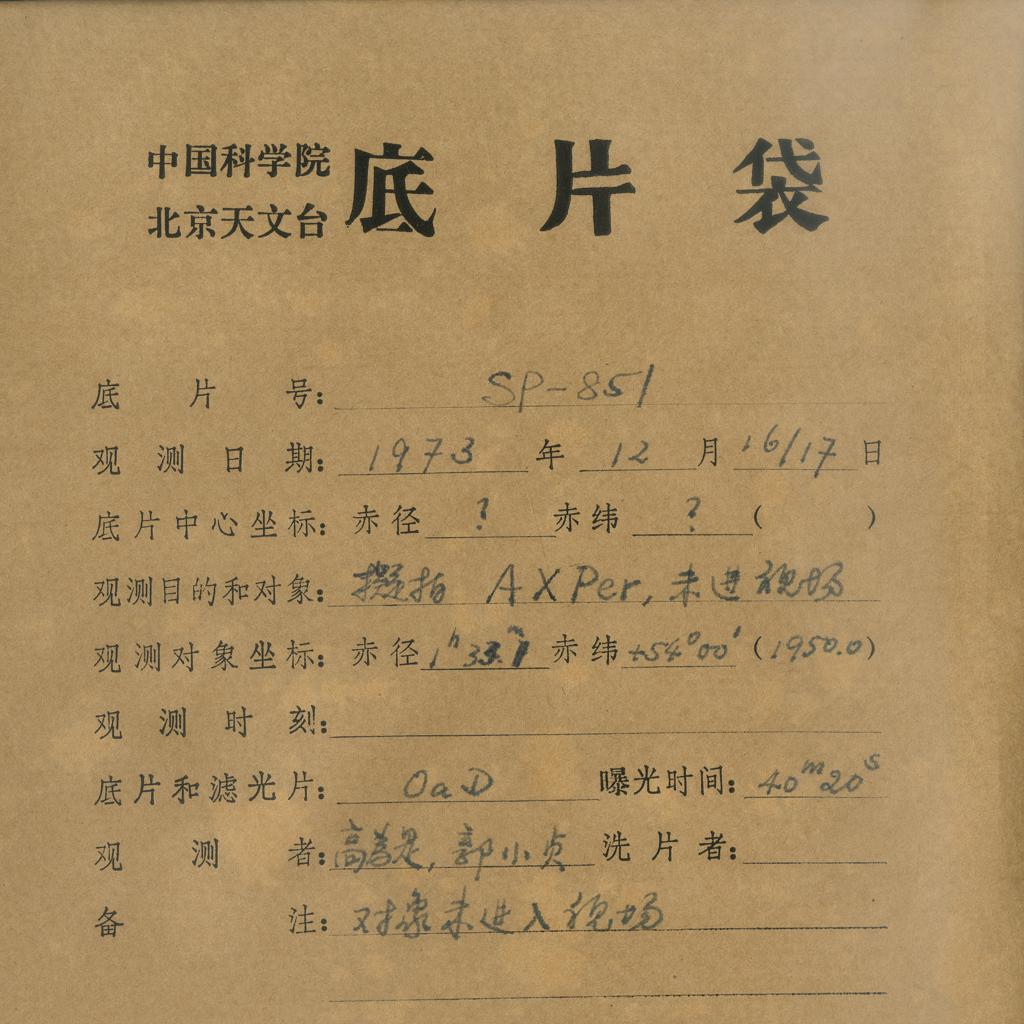 中国科学院
北京天文台
底片袋
底片号: SP-851
观测日期: 1973 年 12 月 16/17 日
底片中心坐标: 赤径 ? 赤纬 ? ( )
观测目的和对象: 拟指 AX Per, 未进视场
观测对象坐标: 赤径 1h 33. 赤纬 +54°00′ (1950.0)
观测时刻:
底片和滤光片: OaD 曝光时间: 40m20s
观测者: 高 是, 郭小贞 洗片者:
备注: 对象未进入视场